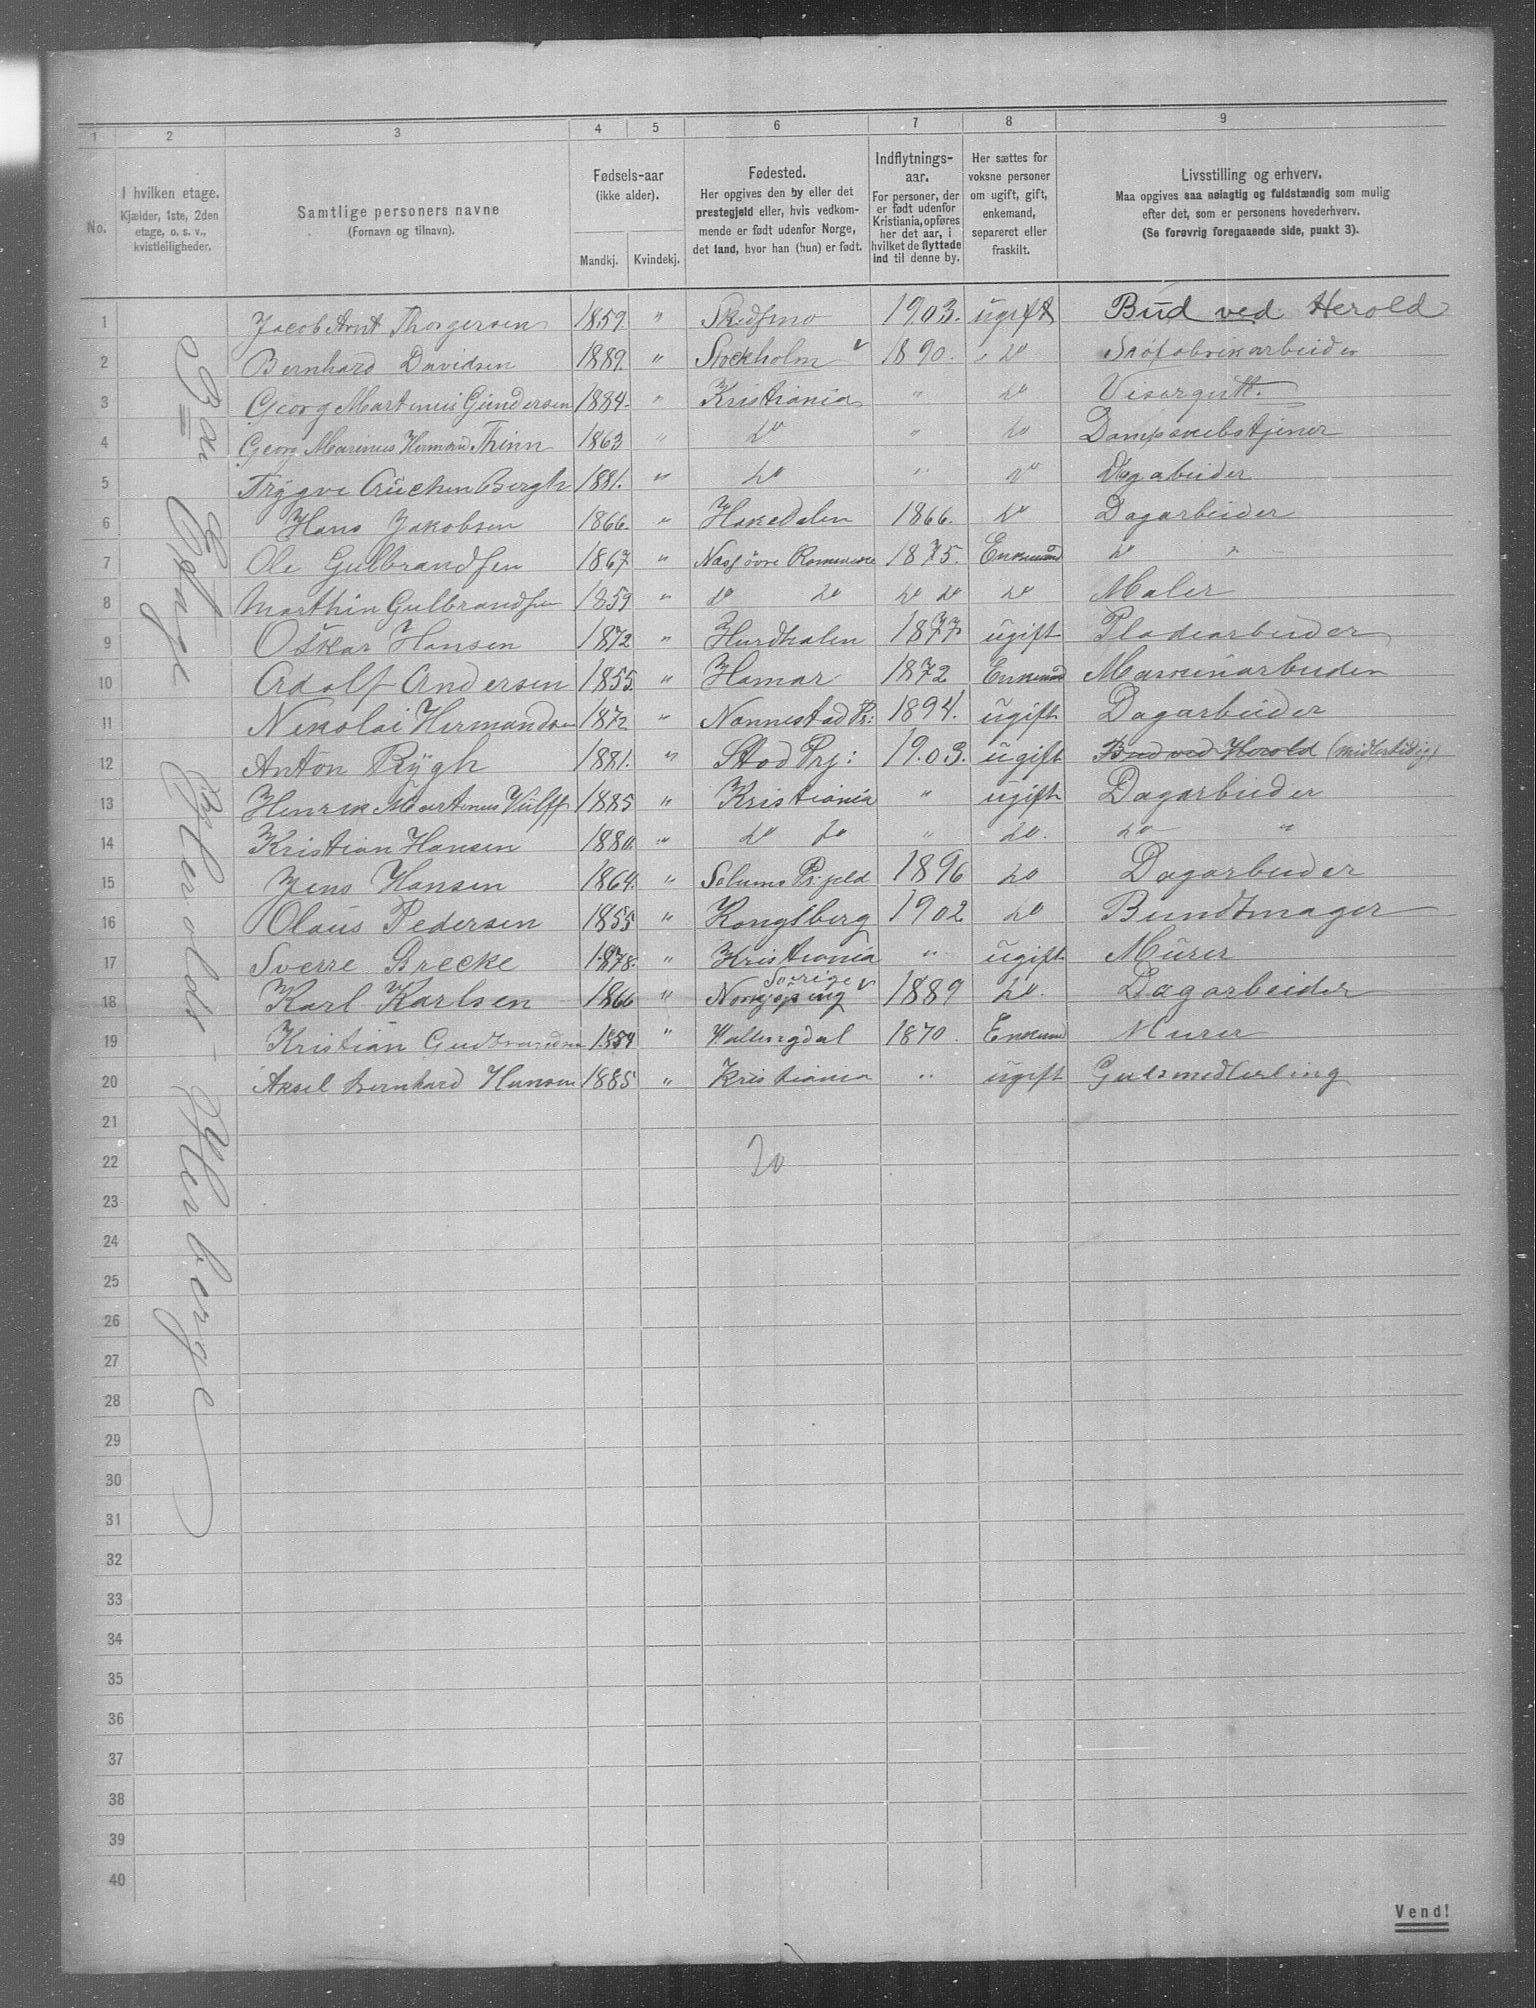 1 2 3 4 5 6 7 8 9
No. I hvilken etage. Kjælder, 1ste, 2den etage, o. s. v., kvistleiligheder. Samtlige personers navne (Fornavn og tilnavn). Fødsels-aar (ikke alder). Mandkj. Kvindekj. Fødested. Her opgives den by eller det prestegjeld eller, hvis vedkommende er født udenfor Norge, det land, hvor han (hun) er født. Indflytnings-aar. For personer, der er født udenfor Kristiania, opføres her det aar, i hvilket de flyttede ind til denne by. Her sættes for voksne personer om ugift, gift, enkemand, separeret eller fraskilt. Livsstilling og erhverv. Maa opgives saa nøiagtig og fuldstændig som mulig efter det, som er personens hovederhverv. (Se forøvrig foregaaende side, punkt 3).
1 Jacob Arnt Thorgersen 1859 " Skedsmo 1903. ugift Bud ved Herold
2 Bernhard Davidsen 1889. " Stockholm v 1890. do Skofabrikarbeider
3 Georg Martinius Gundersen 1884. " Kristiania " do Visergutt.
4 Georg Marinius Herman Thinn 1863 " do " do
5 Trygve Bergh 1881. " do " do Dagarbeider
6 Hans Jakobsen 1866. " Hakedalen 1866. do Dagarbeider
7 Ole Gulbrandsen 1867 " 1875. Enkemand do "
8 Marthin Gulbrandsen 1859 " do do do do do Maler
9 Oskar Hansen 1872 " Hurdhalen 1877 ugift Pladearbeider
10 Adolf Andersen 1855. " Hamar 1872 Enkemand
11 Nikolai Hermandsen 1872 " Nannestad Pr: 1894. ugift Dagarbeider
12 Anton Rygh 1881. " Stod Prj: 1903. ugift Bud ved Herold (midlertidig)
13 Henrik Martinus Vulff 1885 " Kristiania " ugift Dagarbeider
14 Kristian Hansen 1880. " do do " do. do "
15 Jens Hansen 1864. " Solums Pr.gjeld 1896 do Dagarbeider
16 Olaus Pedersen 1855 " Kongsberg 1902 do Bundtmager
17 Sverre Brecke 1878. " Kristiania " ugift Murer
18 Karl Karlsen 1866 " Norrjøping Sverige v 1889 do. Dagarbeider
19 Kristian Gudbrandsen 1854 " Hallingdal 1870. Enkemand Murer
20 Aksel Bernhard Hansen 1885 " Kristiania " ugift Gulsmedlerling
21
22 20
23
24
25
26
27
28
29
30
31
32
33
34
35
36
37
38
39
40
3die Etage Herolds-Herberge
Vend!